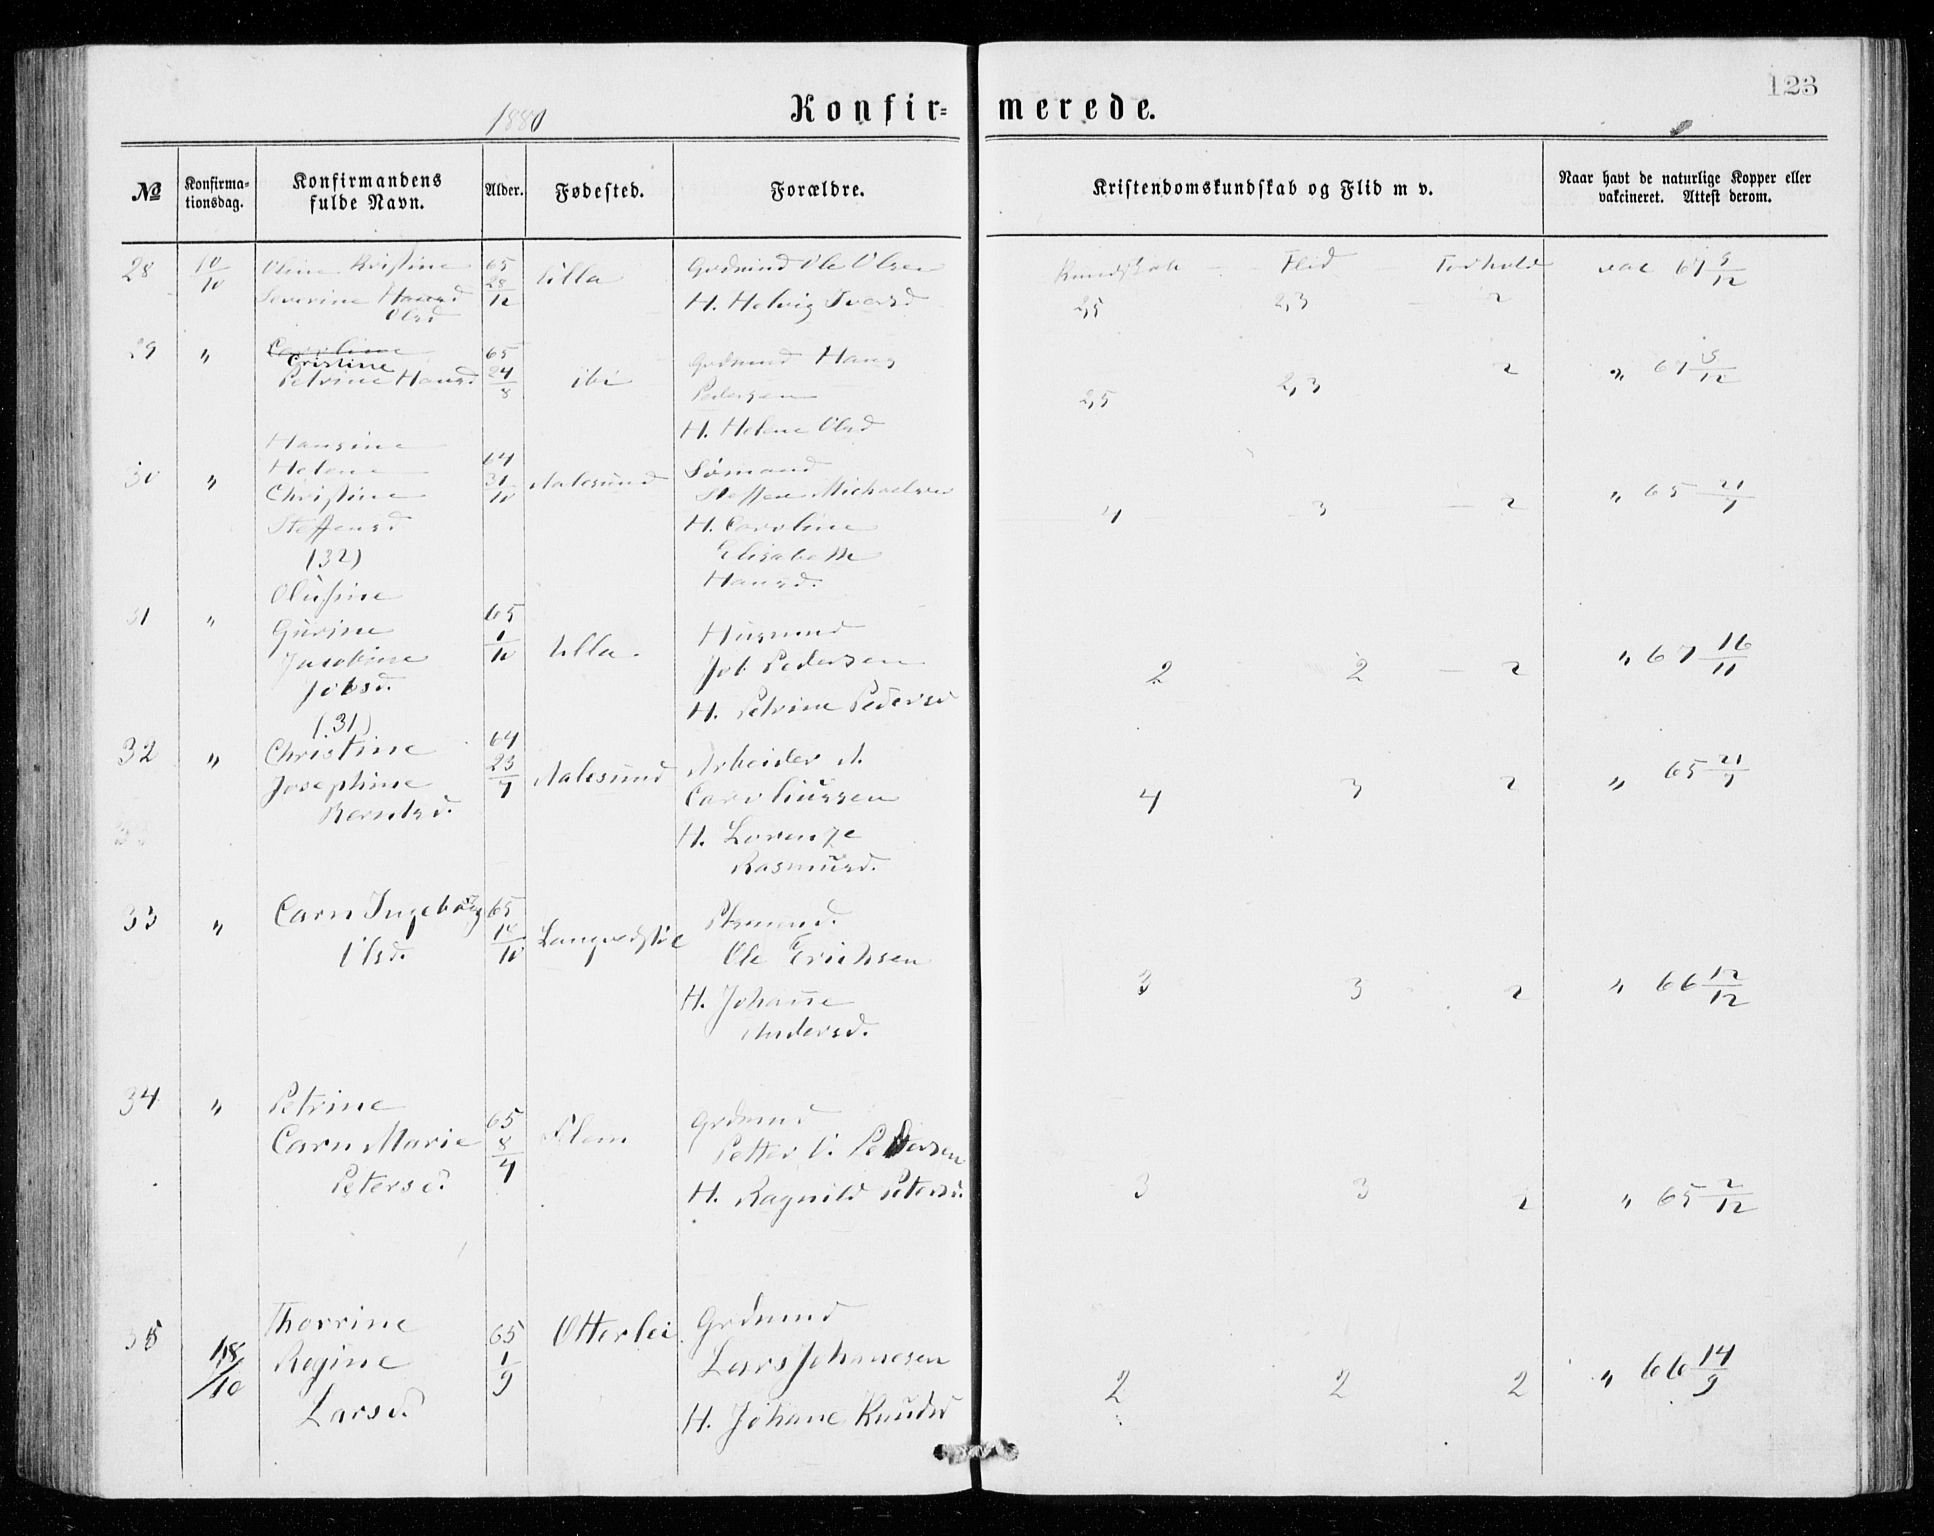 123
1880
Konfir= merede.
№
Konfirma-
tionsdag.
Konfirmandens
fulde Navn.
Alder.
Fødested.
Forældre.
Kristendomskundskab og Flid m v.
Naar havt de naturlige Kopper eller
vakcineret. Attest derom.
28
10/10
Oline Kristine
Severine Hansd
Olsd
65
28/12
Ulla
Grdmnd Ole Olsen
H. Helvig Iversd
Kundskab - Flid - Forhold
2,5 2,3 2
vac 67 5/12
29
"
Caroline
Cristine
Petrine Hansd
65
24/8
ibi
Grdmnd Hans
Pedersen
H. Helene Olsd
2,5 2,3 2
" 67 5/12
30
"
Hansine
Helene
Christine
Steffensd
(32)
64
31/10
Aalesund
Sømand
Steffen Michaelsen
H. Caroline
Elisabeth
Hansd.
4 3 2
" 65 21/7
31
"
Olufine
Gurine
Jacobine
Jobsd.
(31)
65
1/10
Ulla.
Husmnd
Job Pedersen
H. Petrine Pedersd
2 2 2
" 67 16/11
32
"
Christine
Josephine
Berntsd.
64
23/7
Aalesund
Arbeider A.
Caroliussen
H. Lorenze
Rasmusd.
4 3 2
" 65 21/7
33
"
Carn Ingeborg
Olsd.
65
10
Ole Erichsen
H. Johanne
Andersd.
3 3 2
" 66 12/12
34
"
Petrine
Carn Marie
Petersd.
65
8/4
Flem
Grdmnd
Petter O. Pettersen
H. Ragnild Petersd.
3 3 2
" 65 2/12
35
18/10
Thorrine
Regine
Larsd.
65
1/9
Otterlei
Grdmnd
Lars Johanesen
H. Johane Knudsd
2 2 2
" 66 14/9